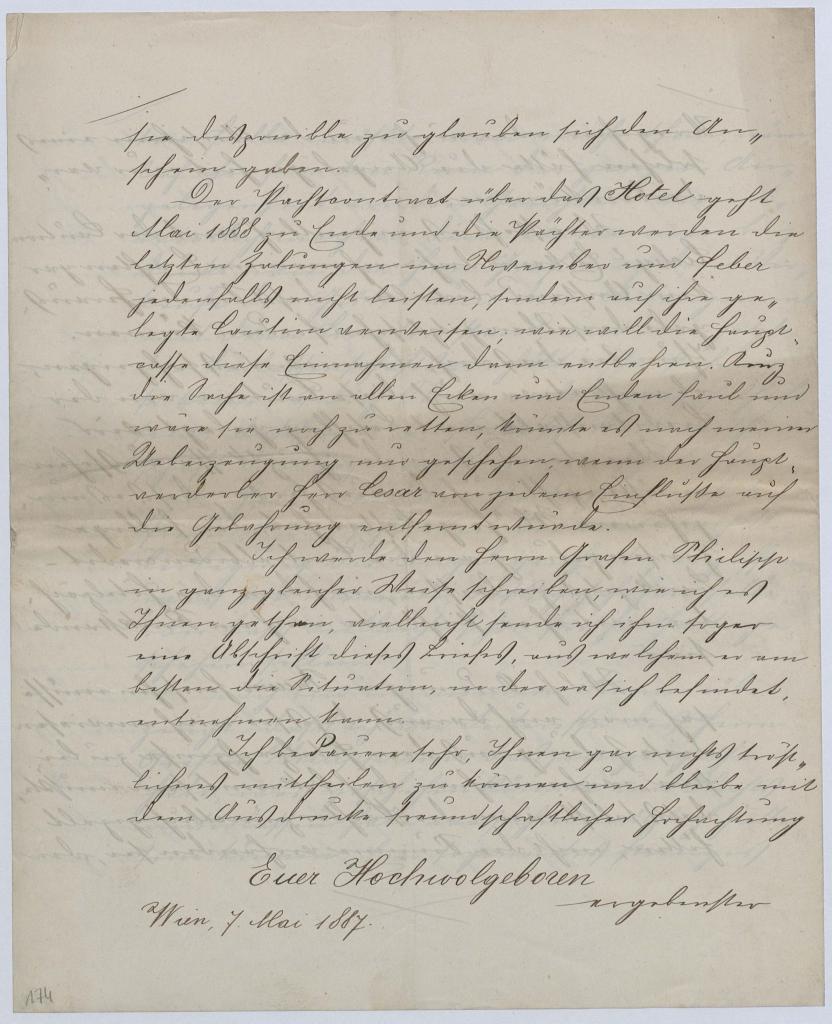 sie disponible zu glauben sich den An„
schein gaben.
Der Pachtcontract über das Hotel geht
Mai 1888 zu Ende und die Pächter werden die
letzten Zalungen im November und Feber
jedenfalls nicht leisten, sondern auf ihre ge„
legte Caution verweisen; wie will die Haupt„
casse diese Einnahmen dann entbehren. Kurz
die Sache ist an allen Ecken und Enden faul und
wäre sie noch zu retten, könnte es nach meiner
Ueberzeugung nur geschehen, wenn der Haupt„
verderber Herr Cesar von jedem Einfluße auf
die Gebahrung entfernt würde.
Ich werde den Herrn Grafen Philipp
in ganz gleicher Weise schreiben, wie ich es
Ihnen gethan, vielleicht sende ich ihm sogar
eine Abschrift dieses Briefes, aus welchem er am
besten die Situation, in der er sich befindet,
entnehmen kann.
Ich bedauere sehr, Ihnen gar nichts tröst„
liches mittheilen zu können und bleibe mit
dem Ausdrucke freundschaftlicher Hochachtung
Euer Hochwolgeboren
ergebenster
Wien, 7. Mai 1887.
174